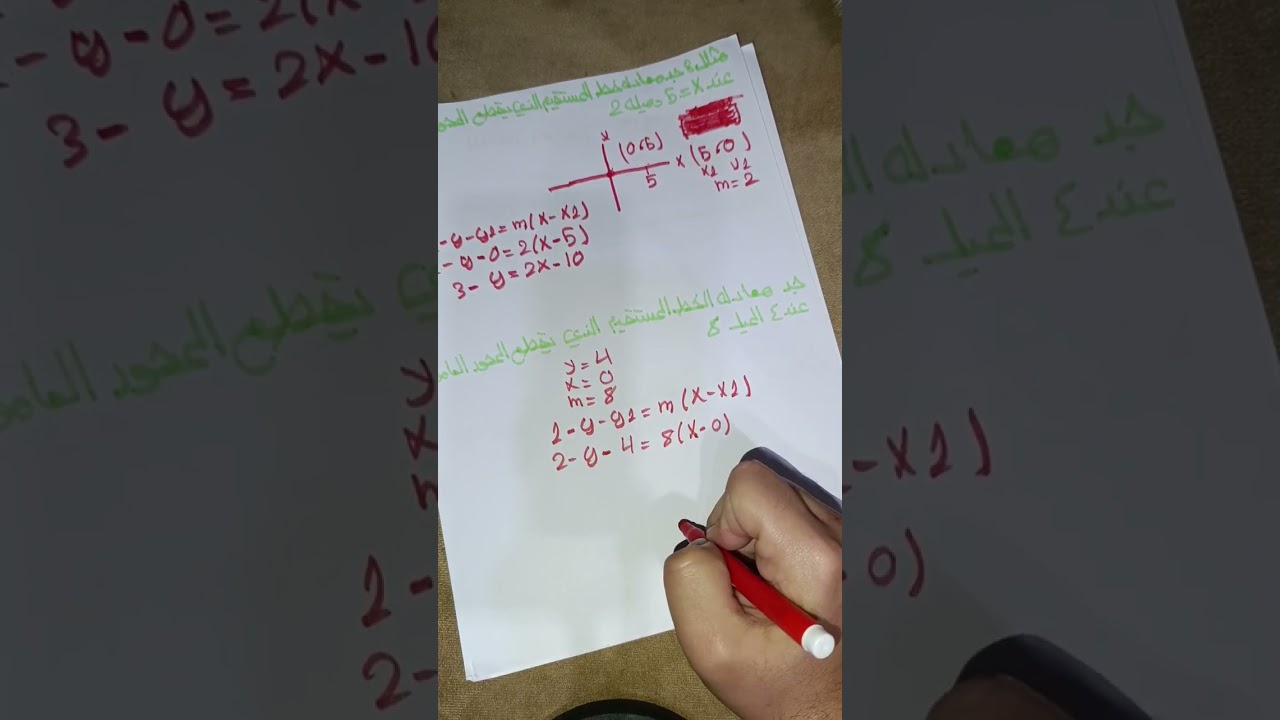 مثال 8 جد معادله خط المستقيم الذي يقطع المحور
عند x=5 وميله 2
(0،5)
x (5،0)
5
x1 y1
m=2
- y-y1=m(x-x1)
- y-0=2(x-5)
3- y=2x-10
جد معادله الخط المستقيم الذي يقطع المحور العامو
عند 4 الميل 8
y=4
x=0
m=8
1-y-y1=m(x-x1)
2-y-4=8(x-0)